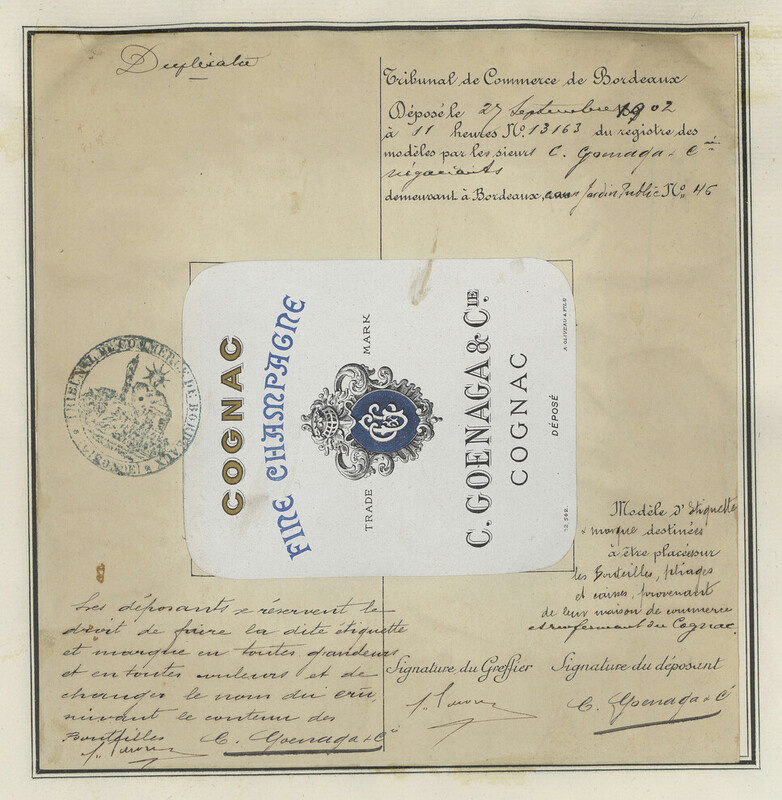 Duplicata
Tribunal de Commerce de Bordeaux
Déposé le 27 Septembre 1902
à 11 heures No. 13163 du registre des
modèles par les sieurs C. Goenaga & Cie
négociants
demeurant à Bordeaux, Jardin Public No. 46
TRIBUNAL DE COMMERCE DE BORDEAUX
(GIRONDE)
COGNAC
FINE CHAMPAGNE
TRADE MARK
C. GOENAGA & CIE.
COGNAC
DÉPOSÉ
Modèle d'étiquette
& marque destinées
à être placés sur
les bouteilles, pliages
et caisses, provenant
de leur maison de commerce
et renfermant du Cognac.
Les déposants se réservent le
droit de faire la dite étiquette
et marque en toutes grandeurs
et en toutes couleurs et de
changer le nom du crû,
suivant le contenu des
Bouteilles
C. Goenaga & Cie
Signature du Greffier
Signature du déposant
C. Goenaga & Cie